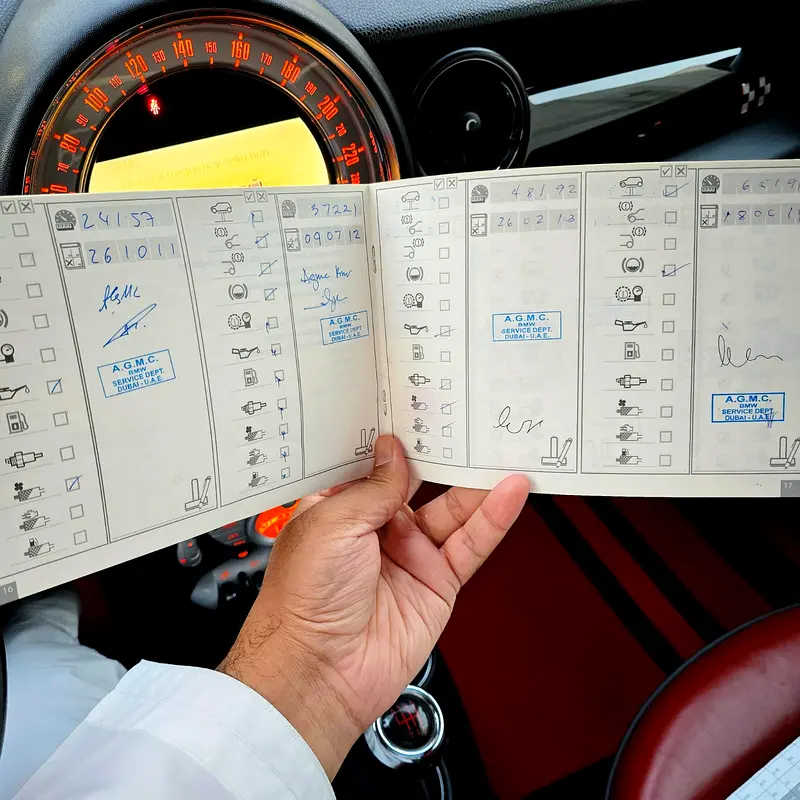 80
70
100
110
120
130
140
150
160
170
180
200
210
220
24157
261011
AGMC
A.G.M.C.
BMW
SERVICE DEPT.
DUBAI - U.A.E.
16
37221
090712
Agmc
A.G.M.C.
BMW
SERVICE DEPT.
DUBAI - U.A.E.
48192
260213
A.G.M.C.
BMW
SERVICE DEPT.
DUBAI - U.A.E.
A.G.M.C.
BMW
SERVICE DEPT.
DUBAI - U.A.E.
17